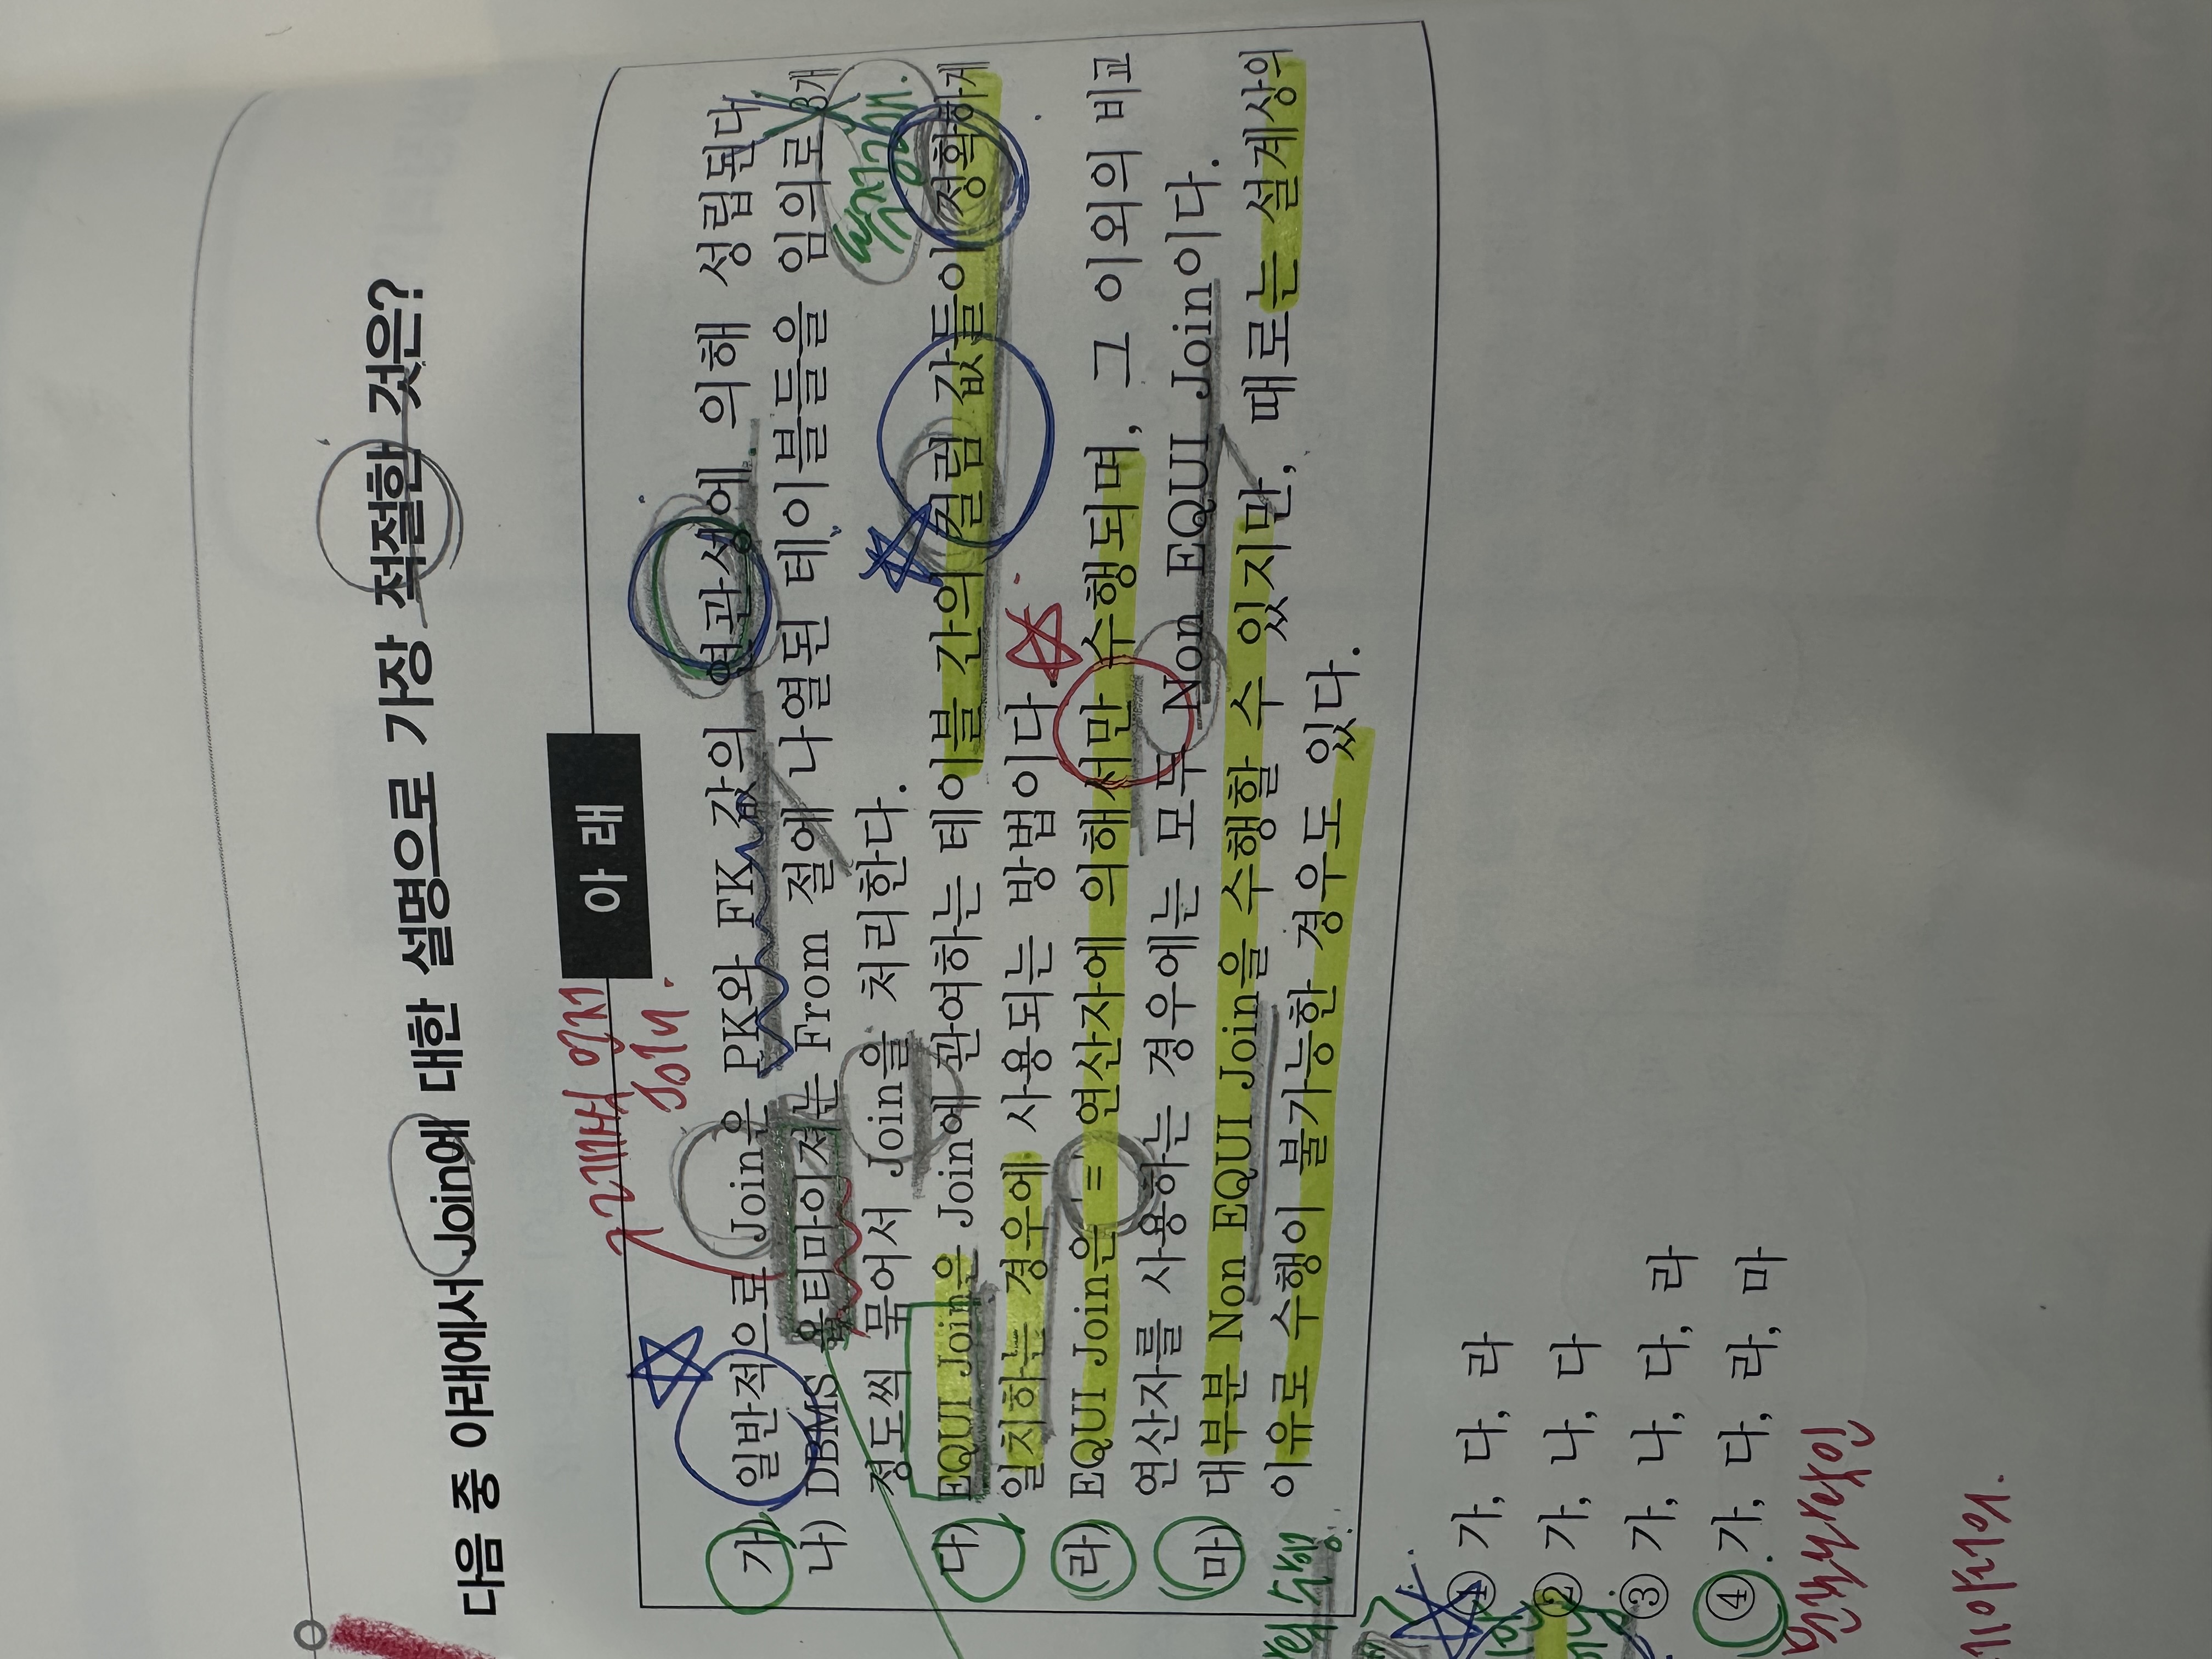 다음 중 아래에서 Join에 대한 설명으로 가장 적절한 것은?
아 래
가) 일반적으로 Join은 PK와 FK 값의 연관성에 의해 성립된다.
나) DBMS 옵티마이져는 From 절에 나열된 테이블들을 임의로 3개
정도씩 묶어서 Join을 처리한다.
다) EQUI Join은 Join에 관여하는 테이블 간의 컬럼 값들이 정확하게
일치하는 경우에 사용되는 방법이다.
라) EQUI Join은 '=' 연산자에 의해서만 수행되며, 그 이외의 비교
연산자를 사용하는 경우에는 모두 Non EQUI Join이다.
마) 대부분 Non EQUI Join을 수행할 수 있지만, 때로는 설계상의
이유로 수행이 불가능한 경우도 있다.
① 가, 다, 라
② 가, 나, 다
③ 가, 나, 다, 라
④ 가, 다, 라, 마